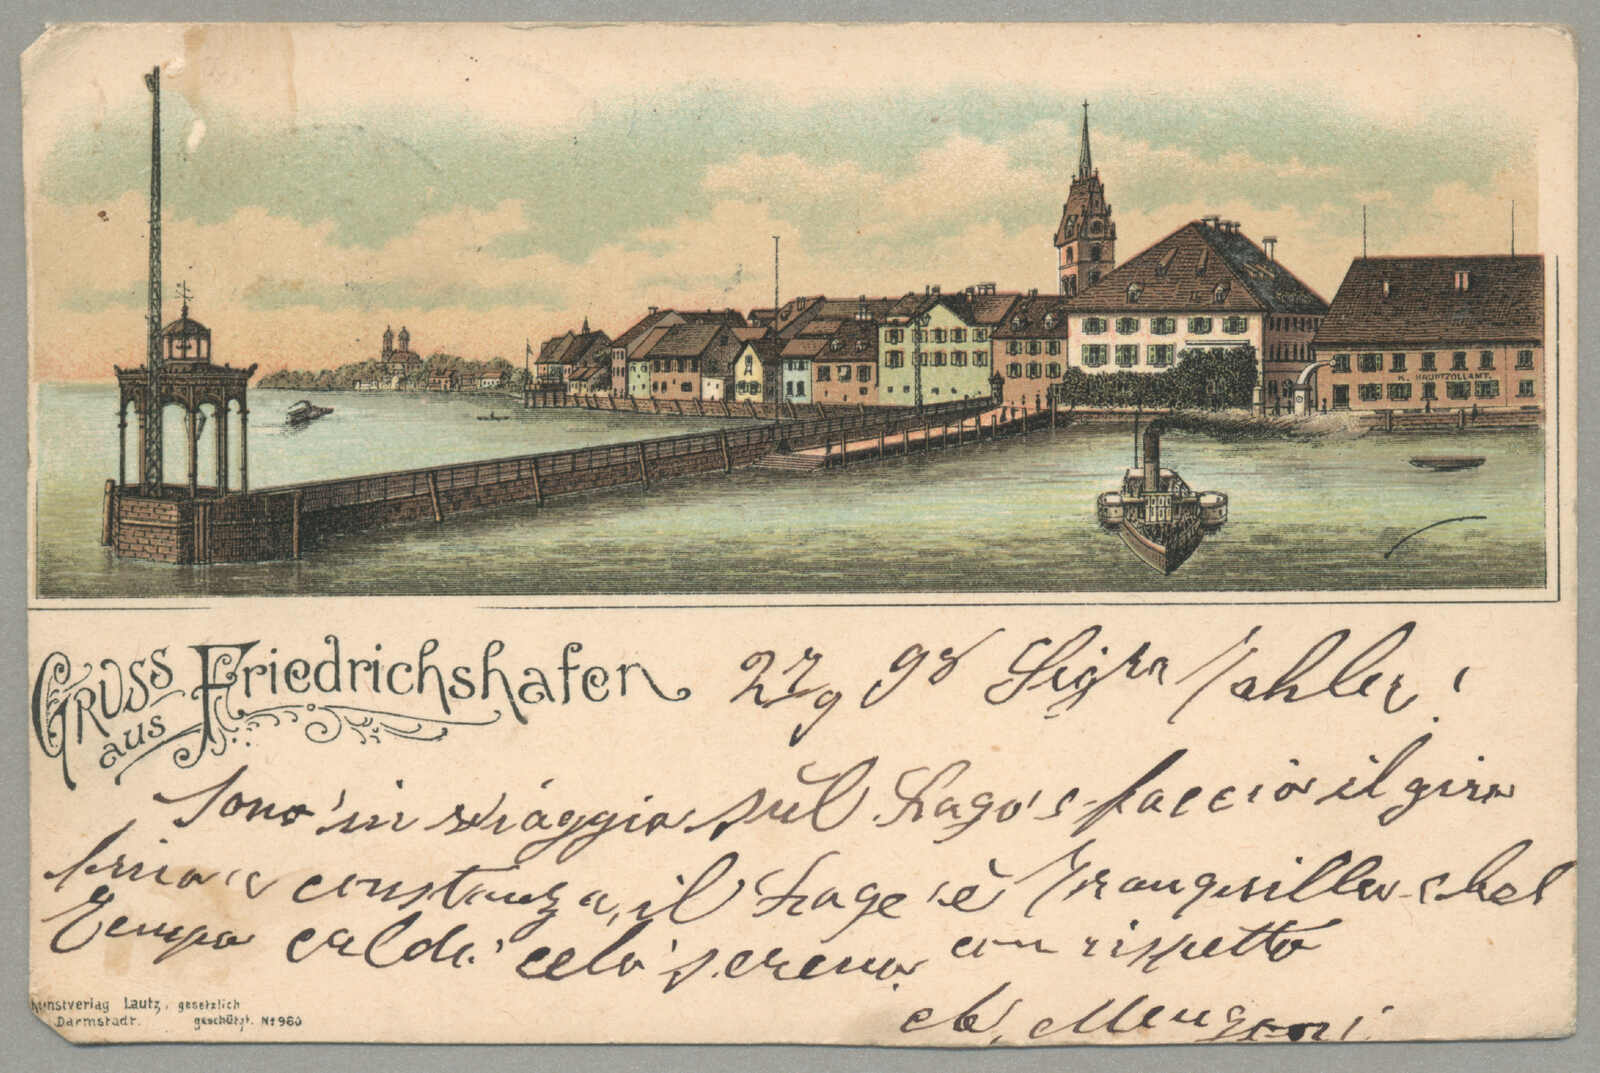 K. HAUPTZOLLAMT.
GRUSS aus Friedrichshafen
27/9 98 Sigra
Sono in viaggio sul Lago e faccio il giro
fino a constanza, il Lago è Tranquillo e bel
Tempo caldo celo sereno con rispetto
Kunstverlag Lautz, gesetzlich
Darmstadt. geschützt. No 980